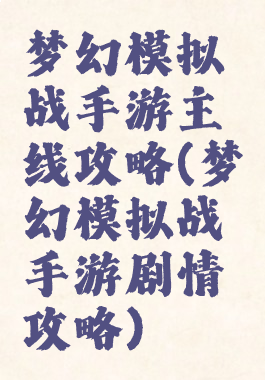 梦幻模拟
战手游主
线攻略(梦
幻模拟战
手游剧情
攻略)